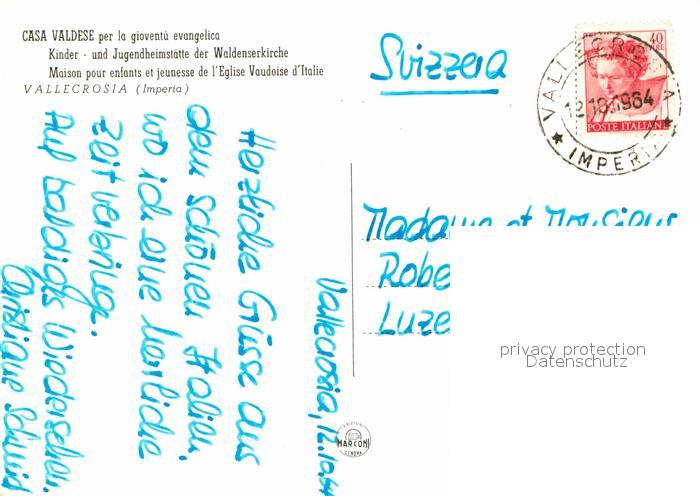 CASA VALDESE per la gioventù evangelica
Kinder - und Jugendheimstätte der Waldenserkirche
Maison pour enfants et jeunesse de l'Eglise Vaudoise d'Italie
VALLECROSIA (Imperia)
Svizzera
40
LIRE
POSTE ITALIANE
VALLECROSIA
12.10.1964
IMPERIA
Madame et Monsieur
Robe
Luze
privacy protection
Datenschutz
Vallecrosia, 12.10.64
Herzliche Grüsse aus
dem schönen Italien,
wo ich eine herrliche
Zeit verbringe.
Auf baldigs Wiedersehen.
Schmid
EDIZIONI
MARCONI
GENOVA